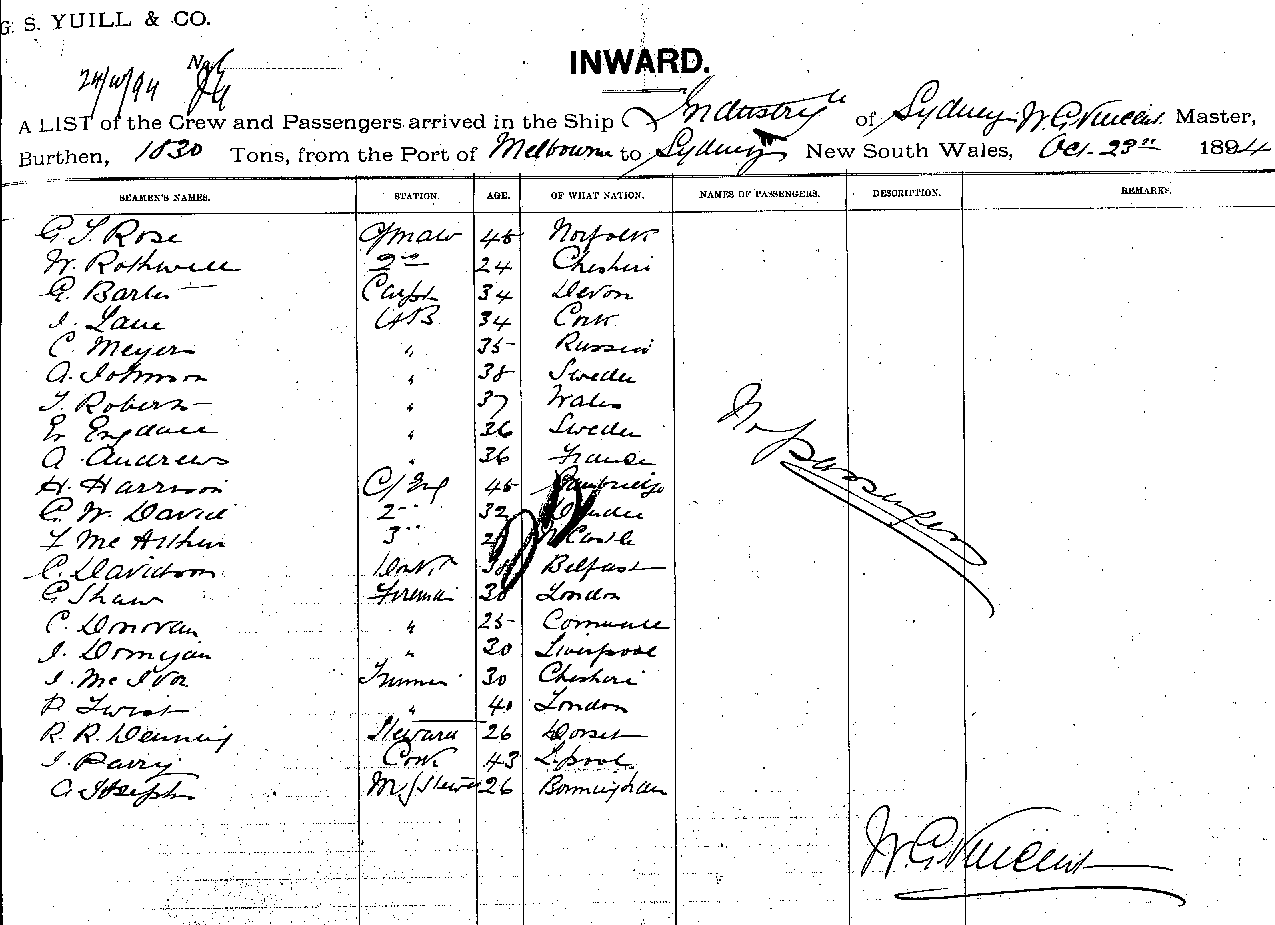 G. S. YUILL & CO.
INWARD.
24/10/94 No
A LIST of the Crew and Passengers arrived in the Ship Industry of Sydney W. G. Vincent Master,
Burthen, 1830 Tons, from the Port of Melbourne to Sydney New South Wales, Oct. 23rd 1894
SEAMEN'S NAMES. STATION. AGE. OF WHAT NATION. NAMES OF PASSENGERS. DESCRIPTION. REMARKS.
G. T. Rose 45 Norfolk
W. Rothwell 2nd 24 Cheshire
G. Barter Carpt 34 Devon
J. Lane AB 34 Cork
C. Meyers " 35 Russia
A. Johnson " 38 Sweden
T. Roberts " 37 Wales
E. Engdall " 36 Sweden
A. Andrews " 36 France
H. Harrison C/Eng 45 Cambridge
G. W. David 2nd 32 Dundee
F McArthur 3rd N Castle
C. Davidson 38 Belfast
G Shaw Fireman 30 London
C. Donovan " 25 Cornwall
J. Domigan " 30 Liverpool
J. McIvor Trimmer 30 Cheshire
P. Twist " 40 London
R. R. Denning Steward 26 Dorset
J. Parry Cook 43 L.pool
A Joseph M/Stewd 26 Bormingham
No passengers
W. G. Vincent